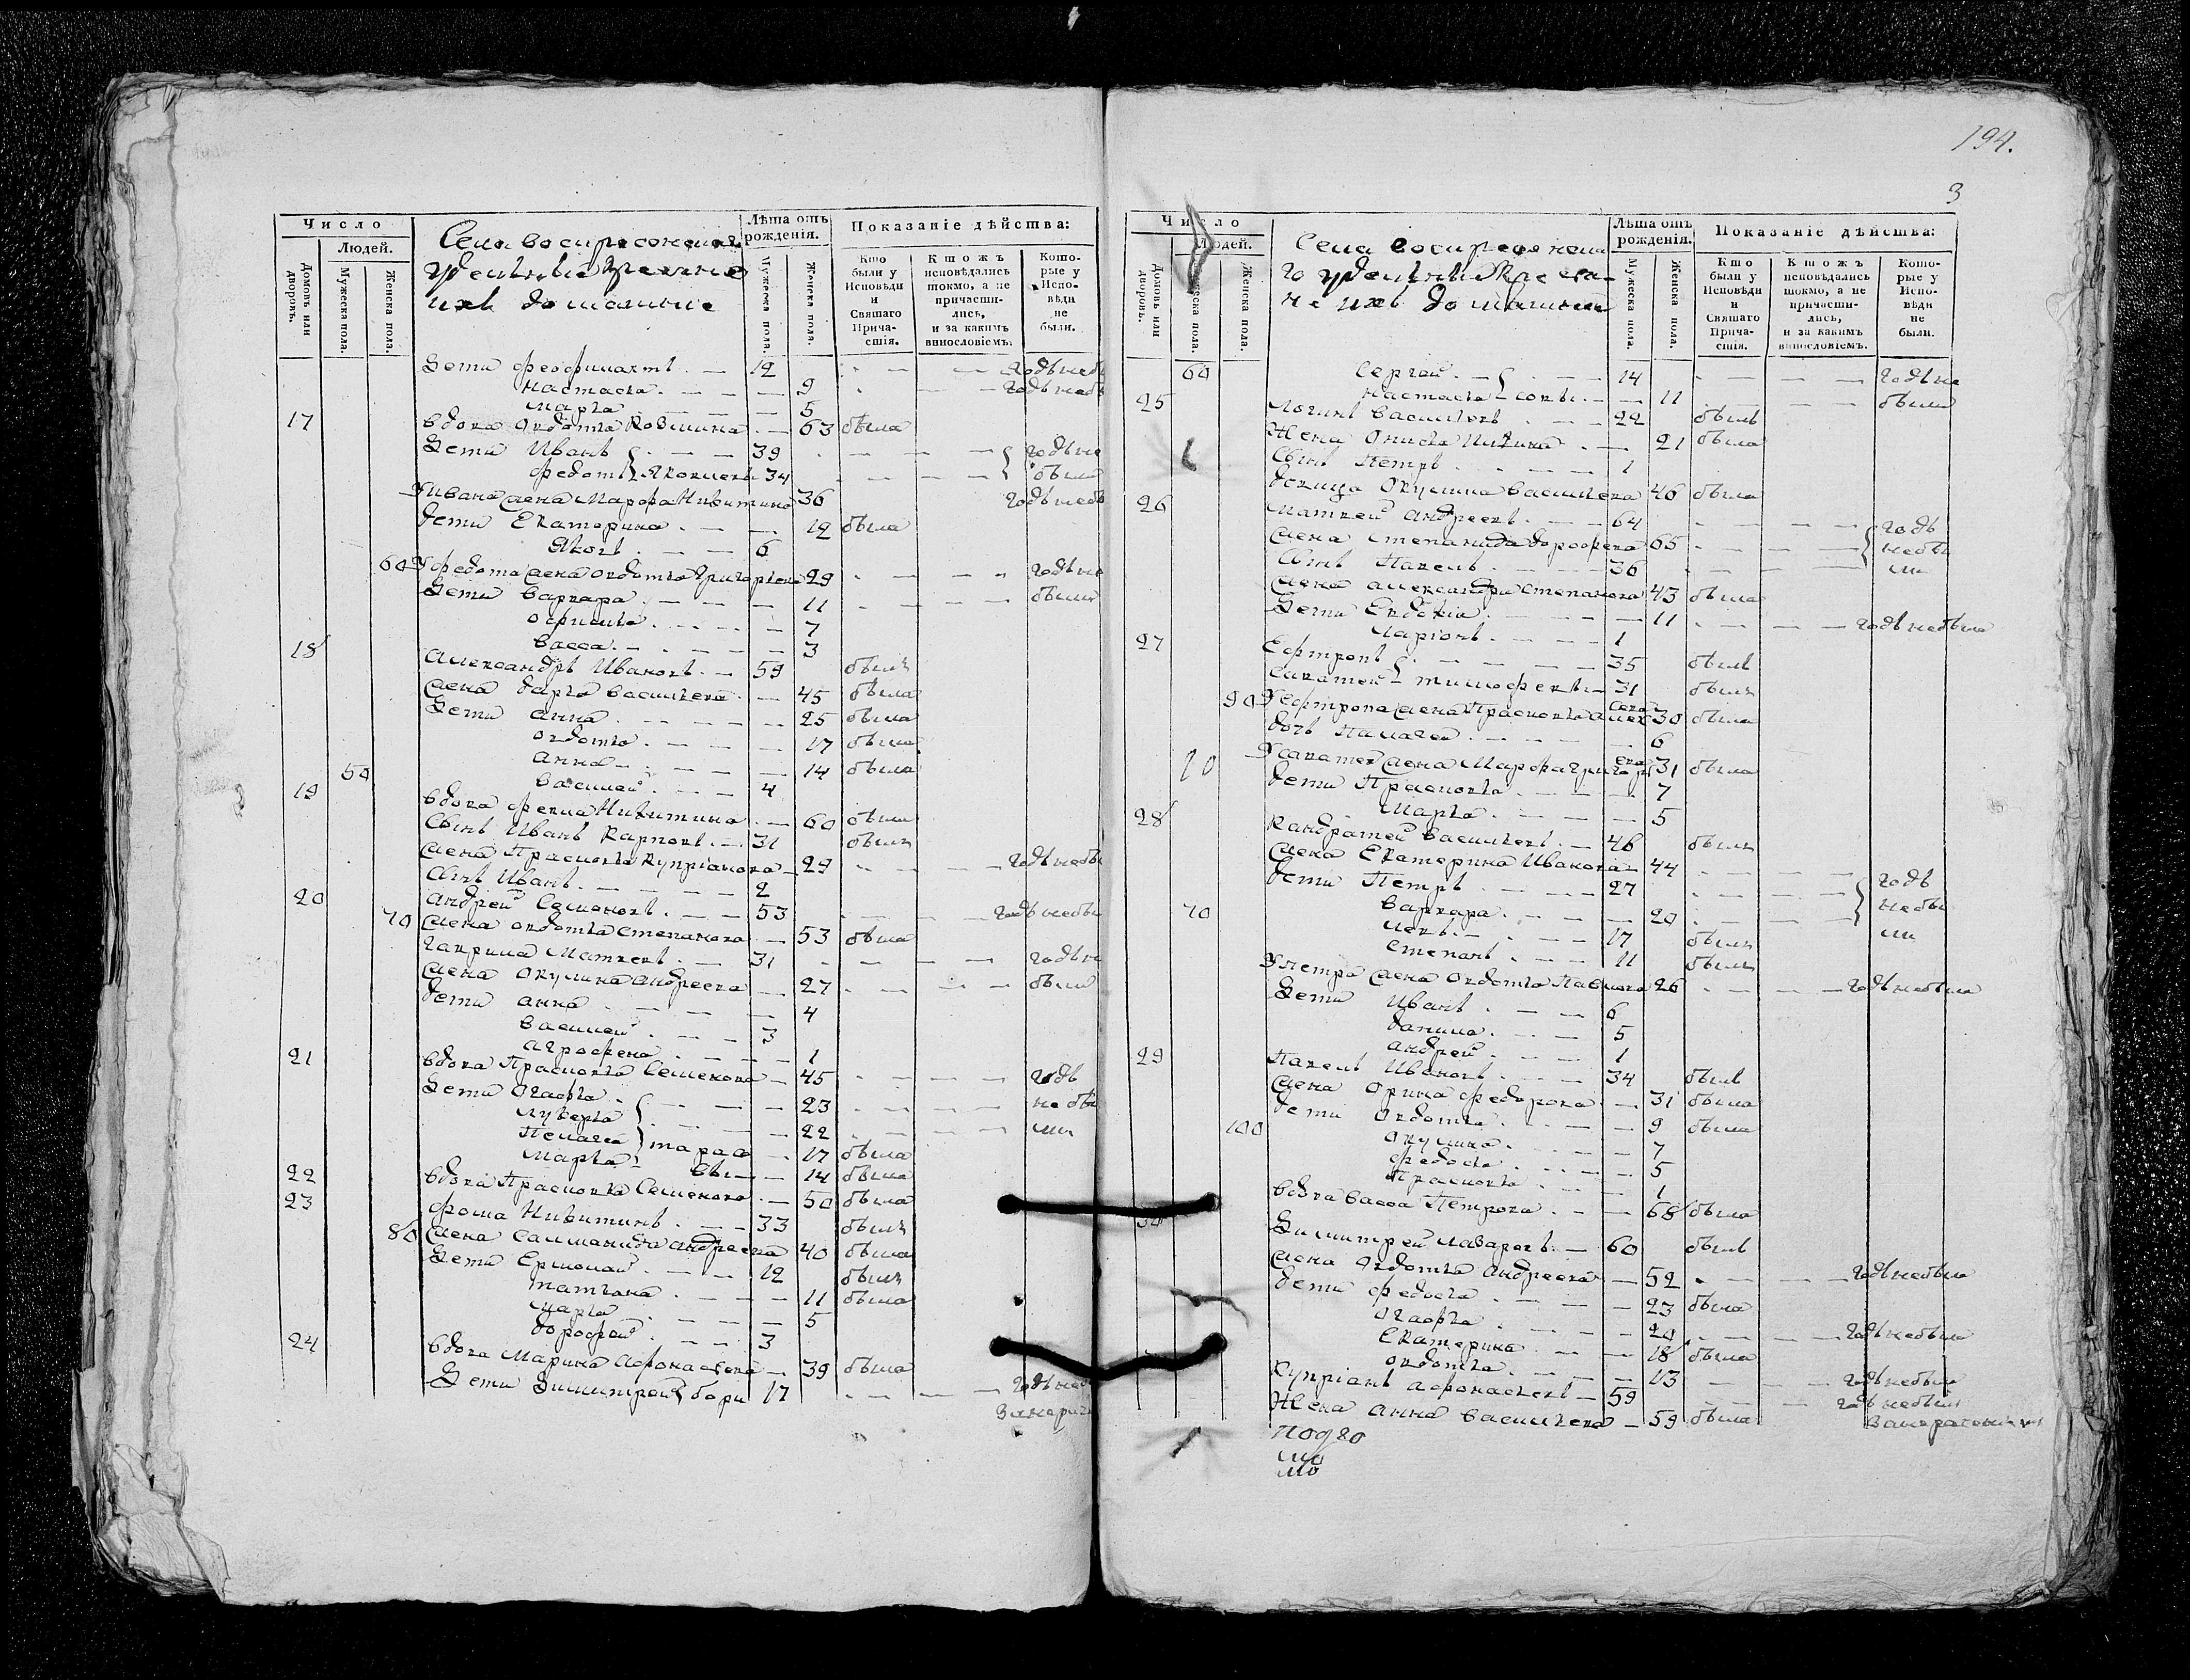 194.
3
Число
Людей.
Домовъ или дворовъ.
Мужеска пола.
Женска пола.
Села воскресенскаго
удельные крестьяне
ихъ домашние
Лѣта отъ рождения.
Мужеска пола.
Женска пола.
Показаніе дѣйства:
Кто были у Исповѣди и Святаго Прича-стія.
Кто жъ исповѣдались токмо, а не причасти-лись, и за какимъ винословіемъ.
Кото-рые у Испо-вѣди не были.
Дети Феофилактъ 12
Настасья 9
Марья 5
17 вдова Овдотья Козмина 63 была
Дети Иванъ 39
Федотъ Яковлевы 34
У Ивана жена Марфа Никитина 36
дети Екатерина 12 была
Яковъ 6
60 У Федота жена Овдотья Григорьева 29
Дети Варвара 11
Офимья 7
Васса 3
18 Александръ Ивановъ 59 былъ
жена Дарья Васильева 45 была
Дети Анна 25 была
Овдотья 17 была
Анна 14 была
50 Василей 4
19 вдова Фекла Никитина 60 была
Сынъ Иванъ Карповъ 31 былъ
жена Прасковья Куприанова 29
Сынъ Иванъ 2
20 Андрей Семеновъ 53
70 жена Овдотья Степанова 53 была
Гаврила Матвеевъ 31
жена Окулина Андреева 27
дети Анна 4
Василей 3
Аграфена 1
21 вдова Прасковья Семенова 45
Дети Агафья 23
Лукерья 22
Пелагея 17 была
Марья 14 была
тарасовы
22 вдова Прасковья Семенова 50 была
23 Фома Никитинъ 33 былъ
80 жена Саломанида Андреева 40 была
Дети Ермолай 12 былъ
Татьяна 11 была
Марья 5
Дорофей 3
24 вдова Марина Афонасьева 39 была
Дети Димитрей бори 17
Число
Людей.
Домовъ или дворовъ.
Мужеска пола.
Женска пола.
Села воскресенска
го удельные крестья
не ихъ домашние
Лѣта отъ рожденія.
Мужеска пола.
Женска пола.
Показаніе дѣйства:
Кто были у Исповѣди и Святаго Прича-стія.
Кто жъ исповѣдались токмо, а не причасти-лись, и за какимъ винословіемъ.
Кото-рые у Испо-вѣди не были.
60 Сергей 14
Настасья совы 11
25 Логинъ Васильевъ 22 былъ
Жена Онисья Никина 21 была
Сынъ Петръ 1
девица Окулина Васильева 46 была
26 Матвей Андреевъ 64
жена Степанида Дорофеева 65
Сынъ Павелъ 36
жена Александра Степанова 43 была
Дети Евдокия 11 годъ небыла
Ларіонъ 1
27 Ефтропъ 35 былъ
Савватей тимофеевы 31 былъ
90 У Ефтропа жена Прасковья Алексеева 30 была
дочь Палагея 6
У Савватея жена Марфа Григорьева 31 была
дети Прасковья 7
Марья 5
28 Кандратей Васильевъ 46 былъ
жена Екатерина Иванова 44
дети Петръ 27
70 Варвара 20
Левъ 17 былъ
Степанъ 11 былъ
У Петра жена Овдотья Павлова 26 годъ небыла
Дети Иванъ 6
Данила 5
Андрей 1
29 Павелъ Ивановъ 34 былъ
жена Орина Федорова 31 была
дети Овдотья 9 была
100 Окулина 7
Федосья 5
Прасковья 1
вдова Васса Петрова 68 была
Димитрей Лазаревъ 60 былъ
жена Овдотья Андреева 52 годъ небыла
дети Федосья 23 была
Агафья 20 годъ небыла
Екатерина 18 была
Овдотья 13 годъ небыла
Купріанъ Афонасьевъ 59 годъ небылъ
Жена Анна Васильева 59 была